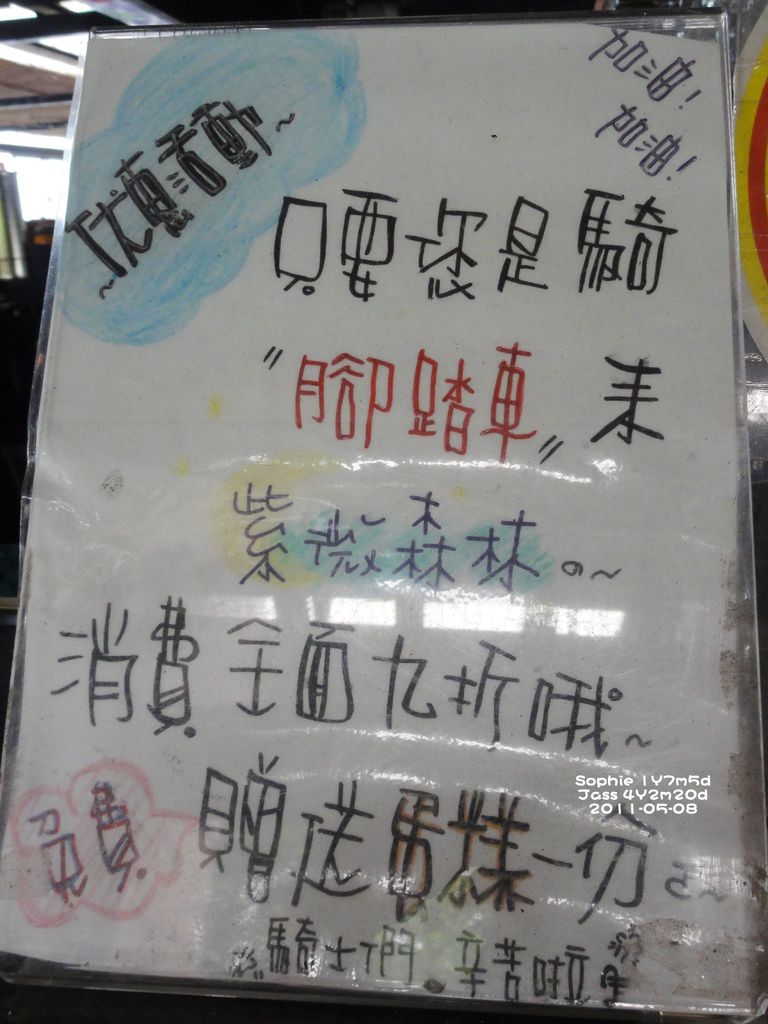 加油!
加油!
~优惠活動~
只要您是騎
"腳踏車"来
紫微森林。~
消費全面九折哦~
Sophie 1Y7m5d
Jass 4Y2m20d
2011-05-08
免費贈送蛋糕一份
騎士們辛苦啦